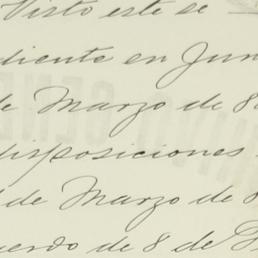 Visto este se
diente en Jun
de Marzo de 8
disposiciones
de Marzo de 8
uerdo de 8 de